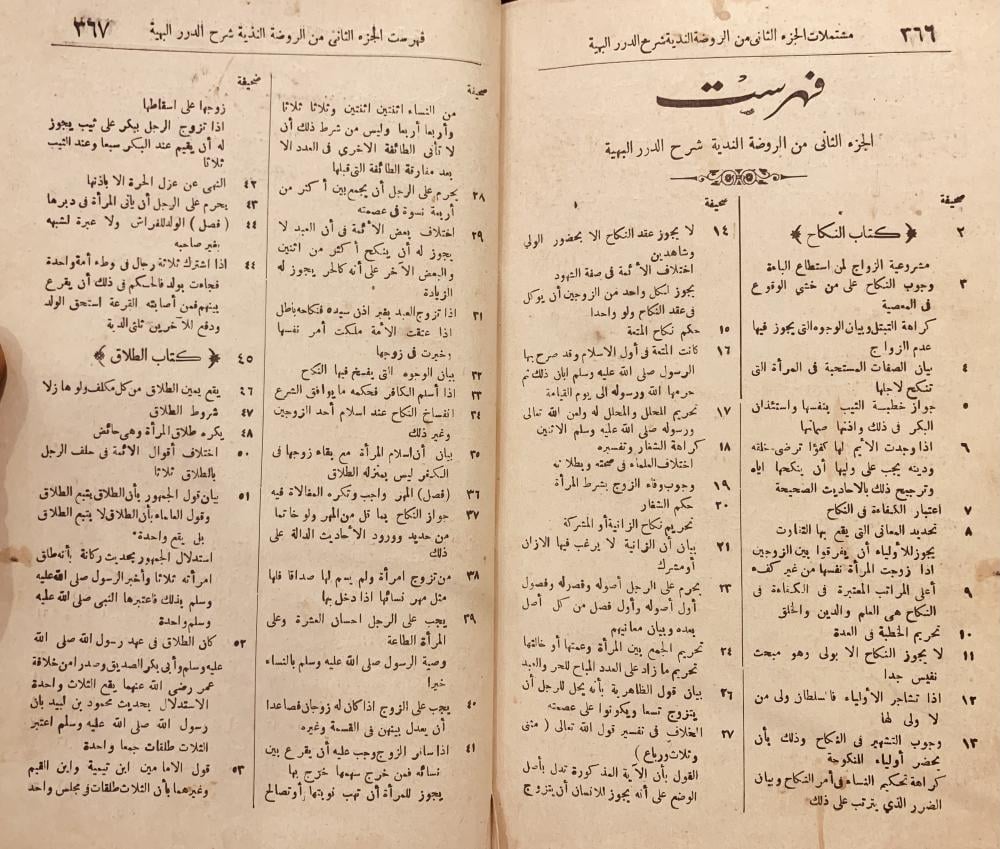 ٣٦٦ مشتملات الجزء الثانى من الروضة الندية شرح الدرر البهية
فهرست
الجزء الثانى من الروضة الندية شرح الدرر البهية
صحيفة
٢ ﴿ كتاب النكاح ﴾
مشروعية الزواج لمن استطاع الباءة
٣ وجوب النكاح على من خشي الوقوع
فى المعصية
كراهة التبتل وبيان الوجوه التى يجوز فيها
عدم الزواج
٤ بيان الصفات المستحبة فى المرأة التى
تنكح لاجلها
٥ جواز خطبة الثيب بنفسها واستئذان
البكر فى ذلك واذنها صماتها
٦ اذا وجدت الأيم لها كفؤا ترضى خلقه
ودينه يجب على وليها أن ينكحها اياه
وترجيح ذلك بالاحاديث الصحيحة
٧ اعتبار الكفاءة فى النكاح
٨ تحديد المعانى التى يقع بها التفاوت
يجوز للأولياء أن يفرقوا بين الزوجين
اذا زوجت المرأة نفسها من غير كفء
٩ أعلى المراتب المعتبرة فى الكفاءة فى
النكاح هى العلم والدين والخلق
١٠ تحريم الخطبة فى العدة
١١ لا يجوز النكاح الا بولى وهو مبحث
نفيس جدا
١٢ اذا تشاجر الأولياء فالسلطان ولى من
لا ولى لها
١٣ وجوب التشهير فى النكاح وذلك بأن
يحضر أولياء المنكوحة
كراهة تحكيم النساء فى أمر النكاح وبيان
الضرر الذي يترتب على ذلك
صحيفة
١٤ لا يجوز عقد النكاح الا بحضور الولى
وشاهدين
اختلاف الأئمة فى صفة الشهود
يجوز لكل واحد من الزوجين أن يوكل
فى عقد النكاح ولو واحدا
١٥ حكم نكاح المتعة
١٦ كانت المتعة فى أول الاسلام وقد صرح بها
الرسول صلى الله عليه وسلم ابان ذلك ثم
حرمها الله ورسوله الى يوم القيامة
١٧ تحريم المحلل والمحلل له ولعن الله تعالى
ورسوله صلى الله عليه وسلم الاثنين
١٨ كراهة الشغار وتفسيره
اختلاف العلماء فى صحته وبطلانه
١٩ وجوب وفاء الزوج بشرط المرأة
٢٠ حكم الشغار
تحريم نكاح الزانية أو المشركة
٢١ بيان أن الزانية لا يرغب فيها الا زان
أو مشرك
٢٣ يحرم على الرجل أصوله وفصوله وفصول
أول أصوله وأول فصل من كل أصل
بعده وبيان معانيهم
٢٤ تحريم الجمع بين المرأة وعمتها أو خالتها
تحريم ما زاد على العدد المباح للحر والعبد
٢٦ بيان قول الظاهرية بأنه يحل للرجل أن
يتزوج تسعا ويكونوا على عصمته
٢٧ الخلاف فى تفسير قول الله تعالى ( مثنى
وثلاث ورباع )
القول بأن الآية المذكورة تدل بأصل
الوضع على أنه يجوز للانسان أن يتزوج
فهرست الجزء الثانى من الروضة الندية شرح الدرر البهية ٣٦٧
صحيفة
من النساء اثنتين اثنتين وثلاثا ثلاثا
وأربعا أربعا وليس من شرط ذلك أن
لا تأتى الطائفة الاخرى فى العدد الا
بعد مفارقة الطائفة التى قبلها
٢٨ يحرم على الرجل أن يجمع بين أكثر من
أربعة نسوة فى عصمته
٢٩ اختلاف بعض الأئمة فى أن العبد لا
يجوز له أن ينكح أكثر من اثنين
والبعض الآخر على أنه كالحر يجوز له
الزيادة
٣١ اذا تزوج العبد بغير اذن سيده فنكاحه باطل
اذا عتقت الأمة ملكت أمر نفسها
وخيرت فى زوجها
٣٢ بيان الوجوه التى يفسخ فيها النكاح
٣٣ اذا أسلم الكافر فحكمه ما يوافق الشرع
٣٤ انفساخ النكاح عند اسلام أحد الزوجين
وغير ذلك
٣٥ بيان أن اسلام المرأة مع بقاء زوجها فى
الكفر ليس بمنزلة الطلاق
٣٦ (فصل) المهر واجب وتكره المغالاة فيه
٣٧ جواز النكاح بما قل من المهر ولو خاتما
من حديد وورود الأحاديث الدالة على
ذلك
٣٨ من تزوج امرأة ولم يسم لها صداقا فلها
مثل مهر نسائها اذا دخل بها
٣٩ يجب على الرجل احسان العشرة وعلى
المرأة الطاعة
وصية الرسول صلى الله عليه وسلم بالنساء
خيرا
٤٠ يجب على الزوج اذا كان له زوجان فصاعدا
أن يعدل بينهن فى القسمة وغيره
٤١ اذا سافر الزوج وجب عليه أن يقرع بين
نسائه فمن خرج سهمها خرج بها
يجوز للمرأة أن تهب نوبتها أو تصالح
صحيفة
زوجها على اسقاطها
اذا تزوج الرجل ببكر على ثيب يجوز
له أن يقيم عند البكر سبعا وعند الثيب
ثلاثا
٤٢ النهى عن عزل الحرة الا باذنها
٤٣ يحرم على الرجل أن يأتى المرأة فى دبرها
٤٤ ( فصل ) الولد للفراش ولا عبرة لشبهه
بغير صاحبه
٤٤ اذا اشترك ثلاثة رجال فى وطء أمة واحدة
فجاءت بولد فالحكم فى ذلك أن يقرع
بينهم فمن أصابته القرعة استحق الولد
ودفع للآخرين ثلثى الدية
٤٥ ﴿ كتاب الطلاق ﴾
٤٦ يقع يمين الطلاق من كل مكلف ولو هازلا
٤٧ شروط الطلاق
٤٨ يكره طلاق المرأة وهى حائض
٥٠ اختلاف أقوال الائمة فى حلف الرجل
بالطلاق ثلاثا
٥١ بيان قول الجمهور بأن الطلاق يتبع الطلاق
وقول العلماء بأن الطلاق لا يتبع الطلاق
بل يقع واحدة
استدلال الجمهور بحديث ركانة بأنه طلق
امرأته ثلاثا وأخبر الرسول صلى الله عليه
وسلم بذلك فاعتبرها النبى صلى الله عليه
وسلم واحدة
٥٢ كان الطلاق فى عهد رسول الله صلى الله
عليه وسلم وأبى بكر الصديق وصدرا من خلافة
عمر رضى الله عنهما يقع الثلاث واحدة
الاستدلال بحديث محمود بن لبيد بأن
رسول الله صلى الله عليه وسلم اعتبر
الثلاث طلقات جمعا واحدة
٥٣ قول الامامين ابن تيمية وابن القيم
وغيرهما بأن الثلاث طلقات فى مجلس واحد